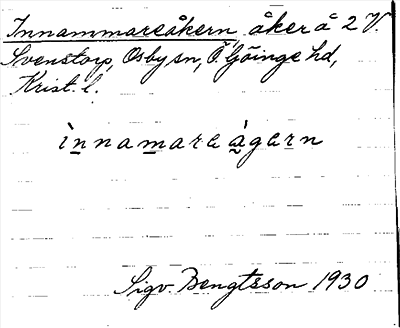 Innammareåkern, åker å 2 V.
Svenstorp, Osby sn, Ö. Göinge hd,
Krist. l.
ìnnamareàgęrn
Sigv. Bengtsson 1930